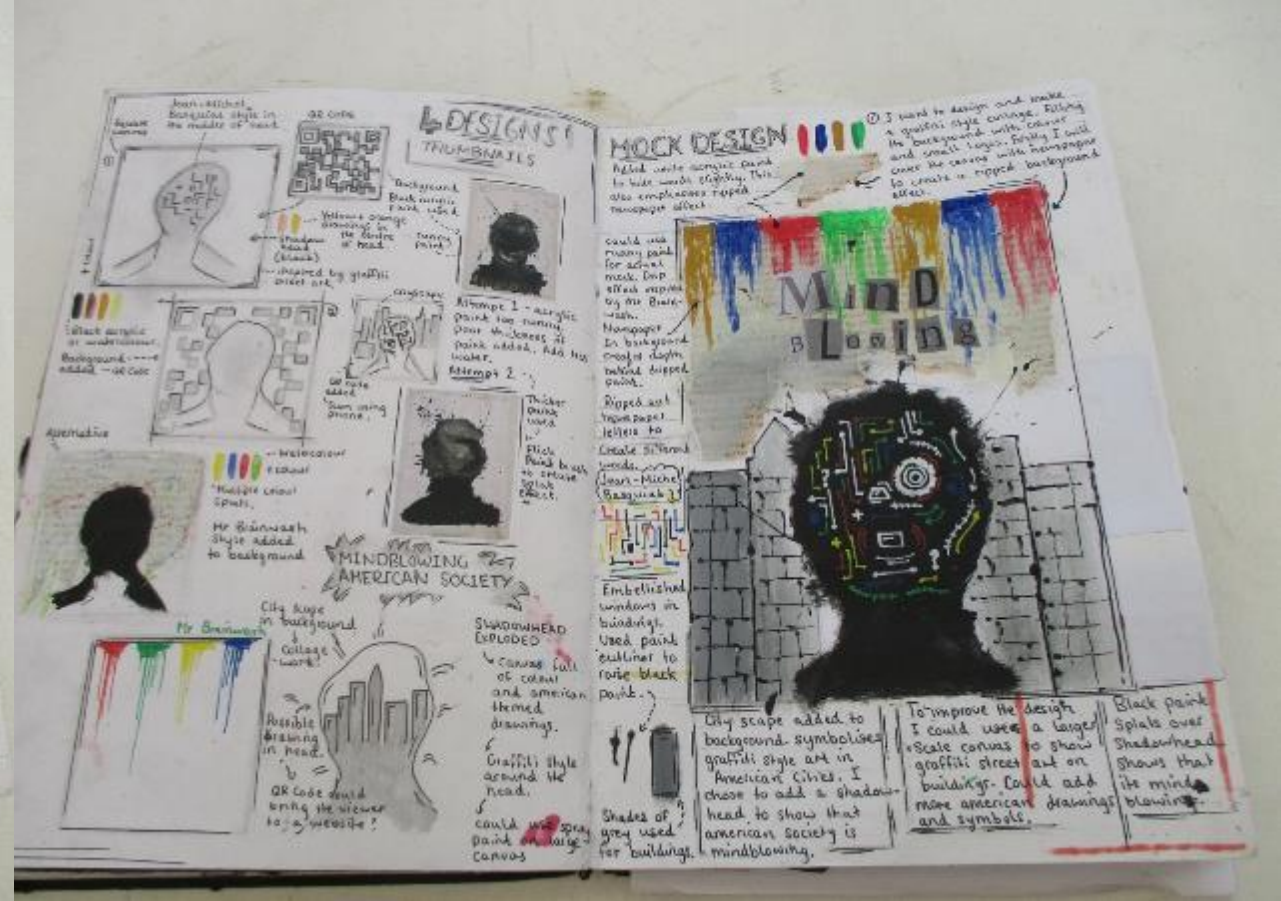 Jean-Michel
Basquiat style in
the middle of head.
Square
canvas
①
QR CODE
4 DESIGNS!
THUMBNAILS
Background
Black acrylic
paint used
runny
paint
Yellow + orange
drawings in
the centre
of head
Shadow
head
(black)
inspired by graffiti
street art
Cityscape
Attempt 1 - acrylic
paint too runny
poor thickness of
paint added. Add less
water.
Attempt 2
Black acrylic
or watercolour.
Background
added - QR Code
QR code
added
Scan using
phone.
Thicker
paint
used
Flick
Paint brush
to create
splat
effect.
Alternative
Watercolour
colour
Multiple colour
splats.
Mr Brainwash
style added
to background
MINDBLOWING
AMERICAN SOCIETY
Mr Brainwash
City scape
in background
Collage
work!
Possible
drawing
in head.
QR Code could
bring the viewer
to a website!
SHADOWHEAD
EXPLODED
Canvas full
of colour
and american
themed
drawings.
Graffiti style
around the
head.
could use spray
paint on large
canvas
MOCK DESIGN
Added white acrylic paint
to hide words slightly. This
also emphasises ripped
newspaper effect
① I want to design and make
a graffiti style collage. Filling
the background with colour
and small logos. Firstly I will
cover the canvas with newspaper
to create a ripped background
effect.
could use
runny paint
for actual
mock. Drip
effect inspired
by Mr Brain-
wash.
Newspaper
in background
creates depth
behind dripped
paint.
Ripped out
newspaper
letters to
create different
words.
Jean-Michel
Basquiat
MinD
BLowing
Embellished
windows in
buildings.
Used paint
outliner to
raise black
paint.
Shades of
grey used
for buildings.
City scape added to
background symbolises
graffiti style art in
American Cities. I
chose to add a shadow-
head to show that
american society is
mindblowing.
To improve the design
I could use a larger
scale canvas to show
graffiti street art on
buildings. Could add
more american drawings
and symbols.
Black paint
Splats over
Shadowhead
Shows that
its mind
blowing.